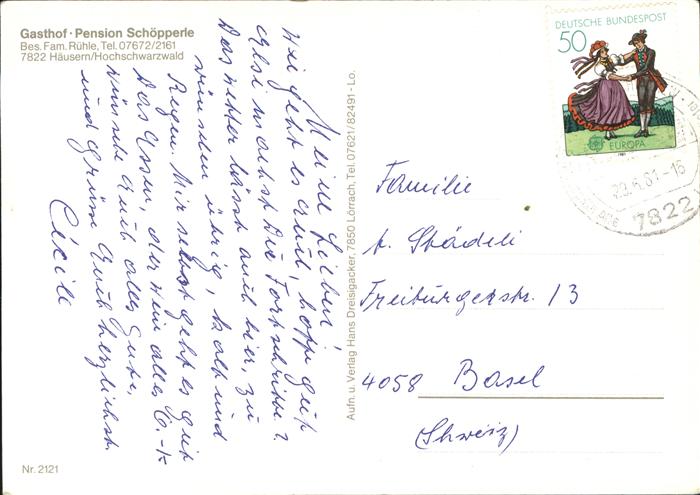 Gasthof · Pension Schöpperle
Bes. Fam. Rühle, Tel. 07672/2161
7822 Häusern/Hochschwarzwald
Meine Lieben!
Wie geht es Euch, hoffe gut
also macht Die Fortschritte?
Das Wetter lässt auch hier, zu
wünschen übrig, kalt und
Regen. Mir selbst geht es gut
Das Essen, der Wein alles
wünsche Euch alles Gute,
und grüsse Euch herzlichst.
Cécile
Nr. 2121
Aufn. u. Verlag Hans Dreisigacker, 7850 Lörrach, Tel. 07621/82491 - Lo.
DEUTSCHE BUNDESPOST
50
EUROPA
1981
7822
Familie
Städeli
Freiburgerstr. 13
4058 Basel
(Schweiz)